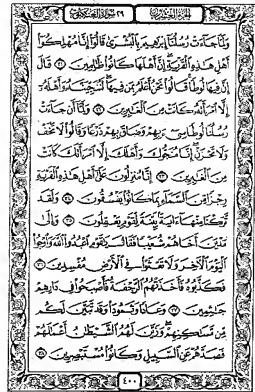 الجزء العشرون ٢٩ سورة العنكبوت
وَلَمَّا جَآءَتْ رُسُلُنَآ إِبْرَٰهِيمَ بِٱلْبُشْرَىٰ قَالُوٓا۟ إِنَّا مُهْلِكُوٓا۟
أَهْلِ هَٰذِهِ ٱلْقَرْيَةِ إِنَّ أَهْلَهَا كَانُوا۟ ظَٰلِمِينَ ٣١ قَالَ
إِنَّ فِيهَا لُوطًا قَالُوا۟ نَحْنُ أَعْلَمُ بِمَن فِيهَا لَنُنَجِّيَنَّهُۥ وَأَهْلَهُۥٓ
إِلَّا ٱمْرَأَتَهُۥ كَانَتْ مِنَ ٱلْغَٰبِرِينَ ٣٢ وَلَمَّآ أَن جَآءَتْ
رُسُلُنَا لُوطًا سِىٓءَ بِهِمْ وَضَاقَ بِهِمْ ذَرْعًا وَقَالُوا۟ لَا تَخَفْ
وَلَا تَحْزَنْ إِنَّا مُنَجُّوكَ وَأَهْلَكَ إِلَّا ٱمْرَأَتَكَ كَانَتْ
مِنَ ٱلْغَٰبِرِينَ ٣٣ إِنَّا مُنزِلُونَ عَلَىٰٓ أَهْلِ هَٰذِهِ ٱلْقَرْيَةِ
رِجْزًا مِّنَ ٱلسَّمَآءِ بِمَا كَانُوا۟ يَفْسُقُونَ ٣٤ وَلَقَد
تَّرَكْنَا مِنْهَآ ءَايَةًۢ بَيِّنَةً لِّقَوْمٍ يَعْقِلُونَ ٣٥ وَإِلَىٰ
مَدْيَنَ أَخَاهُمْ شُعَيْبًا فَقَالَ يَٰقَوْمِ ٱعْبُدُوا۟ ٱللَّهَ وَٱرْجُوا۟
ٱلْيَوْمَ ٱلْءَاخِرَ وَلَا تَعْثَوْا۟ فِى ٱلْأَرْضِ مُفْسِدِينَ ٣٦
فَكَذَّبُوهُ فَأَخَذَتْهُمُ ٱلرَّجْفَةُ فَأَصْبَحُوا۟ فِى دَارِهِمْ
جَٰثِمِينَ ٣٧ وَعَادًا وَثَمُودَا۟ وَقَد تَّبَيَّنَ لَكُم
مِّن مَّسَٰكِنِهِمْ وَزَيَّنَ لَهُمُ ٱلشَّيْطَٰنُ أَعْمَٰلَهُمْ
فَصَدَّهُمْ عَنِ ٱلسَّبِيلِ وَكَانُوا۟ مُسْتَبْصِرِينَ ٣٨
٤٠٠